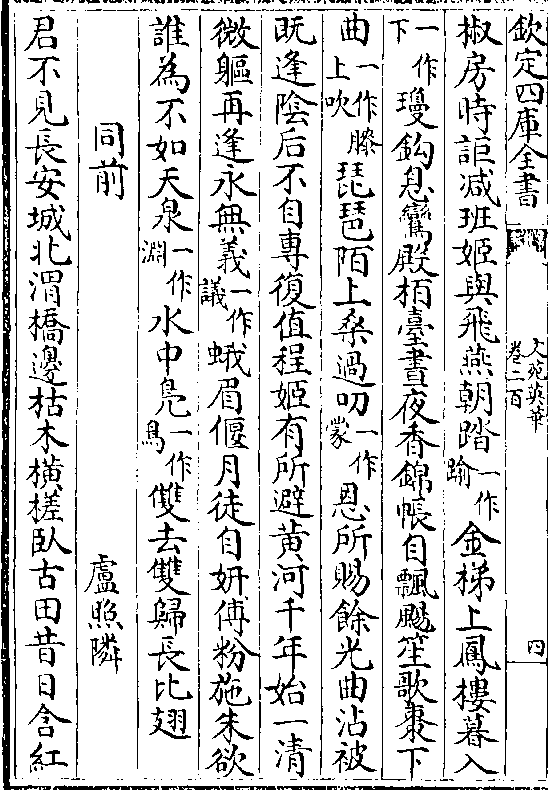 欽定四庫全書
文苑英華
卷二百
四
椒房時詎減班姬與飛燕朝踏一作踰金梯上鳳樓暮入
一作下瓊鈎息鸞殿栢臺晝夜香錦帳自飄颺笙歌棗下
曲一作膝上吹琵琶陌上桑過叨一作蒙恩所賜餘光曲沾被
既逢陰后不自專復值程姬有所避黄河千年始一清
微軀再逢永無義一作議蛾眉偃月徒自妍傅粉施朱欲
誰為不如天泉一作淵水中鳧一作鳥雙去雙歸長比翅
同前
盧照隣
君不見長安城北渭橋邊枯木橫槎臥古田昔日含紅